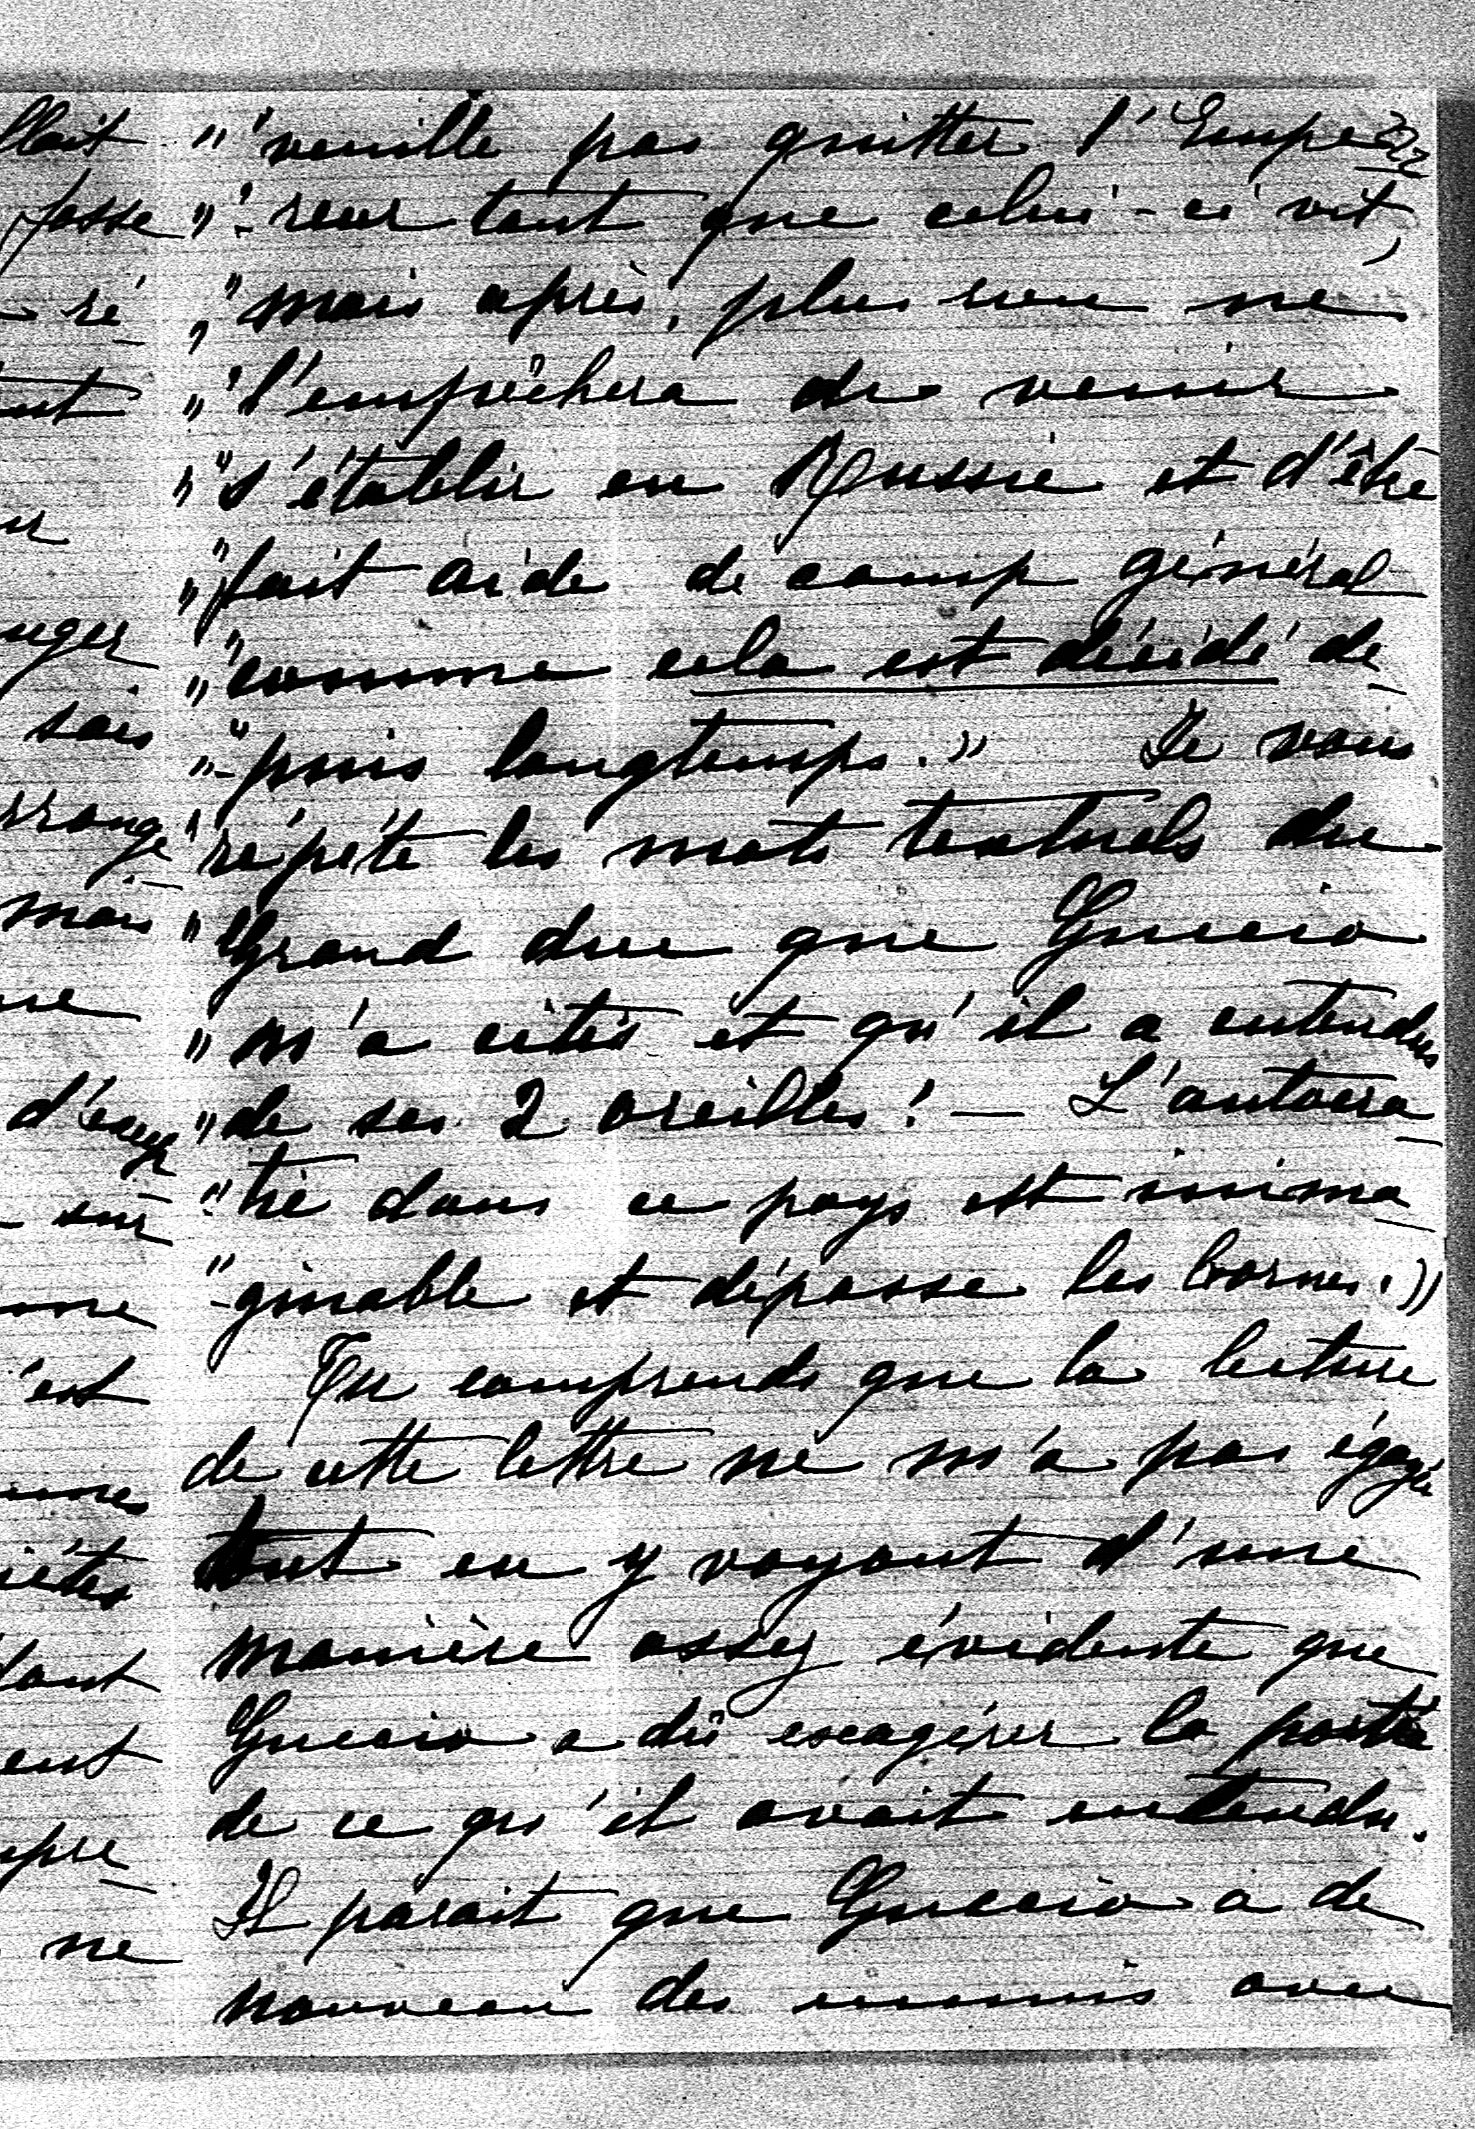 llait
fasse
ré
uger
sais
rrange
mais
d'exep
sur
'est
iétés
dant
ent
ne
" veuille pas quitter l'Empe
"-reur tant que celui-ci vit,
" mais après, plus rien ne
" l'empêchera de venir
" s'établir en Russie et d'être
" fait aide de camp général
" comme cela est décidé de
"-puis longtemps." Je vous
" répéte les mots textuels du
" Grand duc que Guccio
" m'a cités et qu'il a entendus
" de ses 2 oreilles! — L'autocra
"-tie dans ce pays est inima
"-ginable et dépasse les bornes."
Tu comprends que la lecture
de cette lettre ne m'a pas égayé
tout en y voyant d'une
manière assez évidente que
Guccio a dû exagérer la portée
de ce qu'il avait entendu.
Il parait que Guccio a de
nouveau des ennuis avec